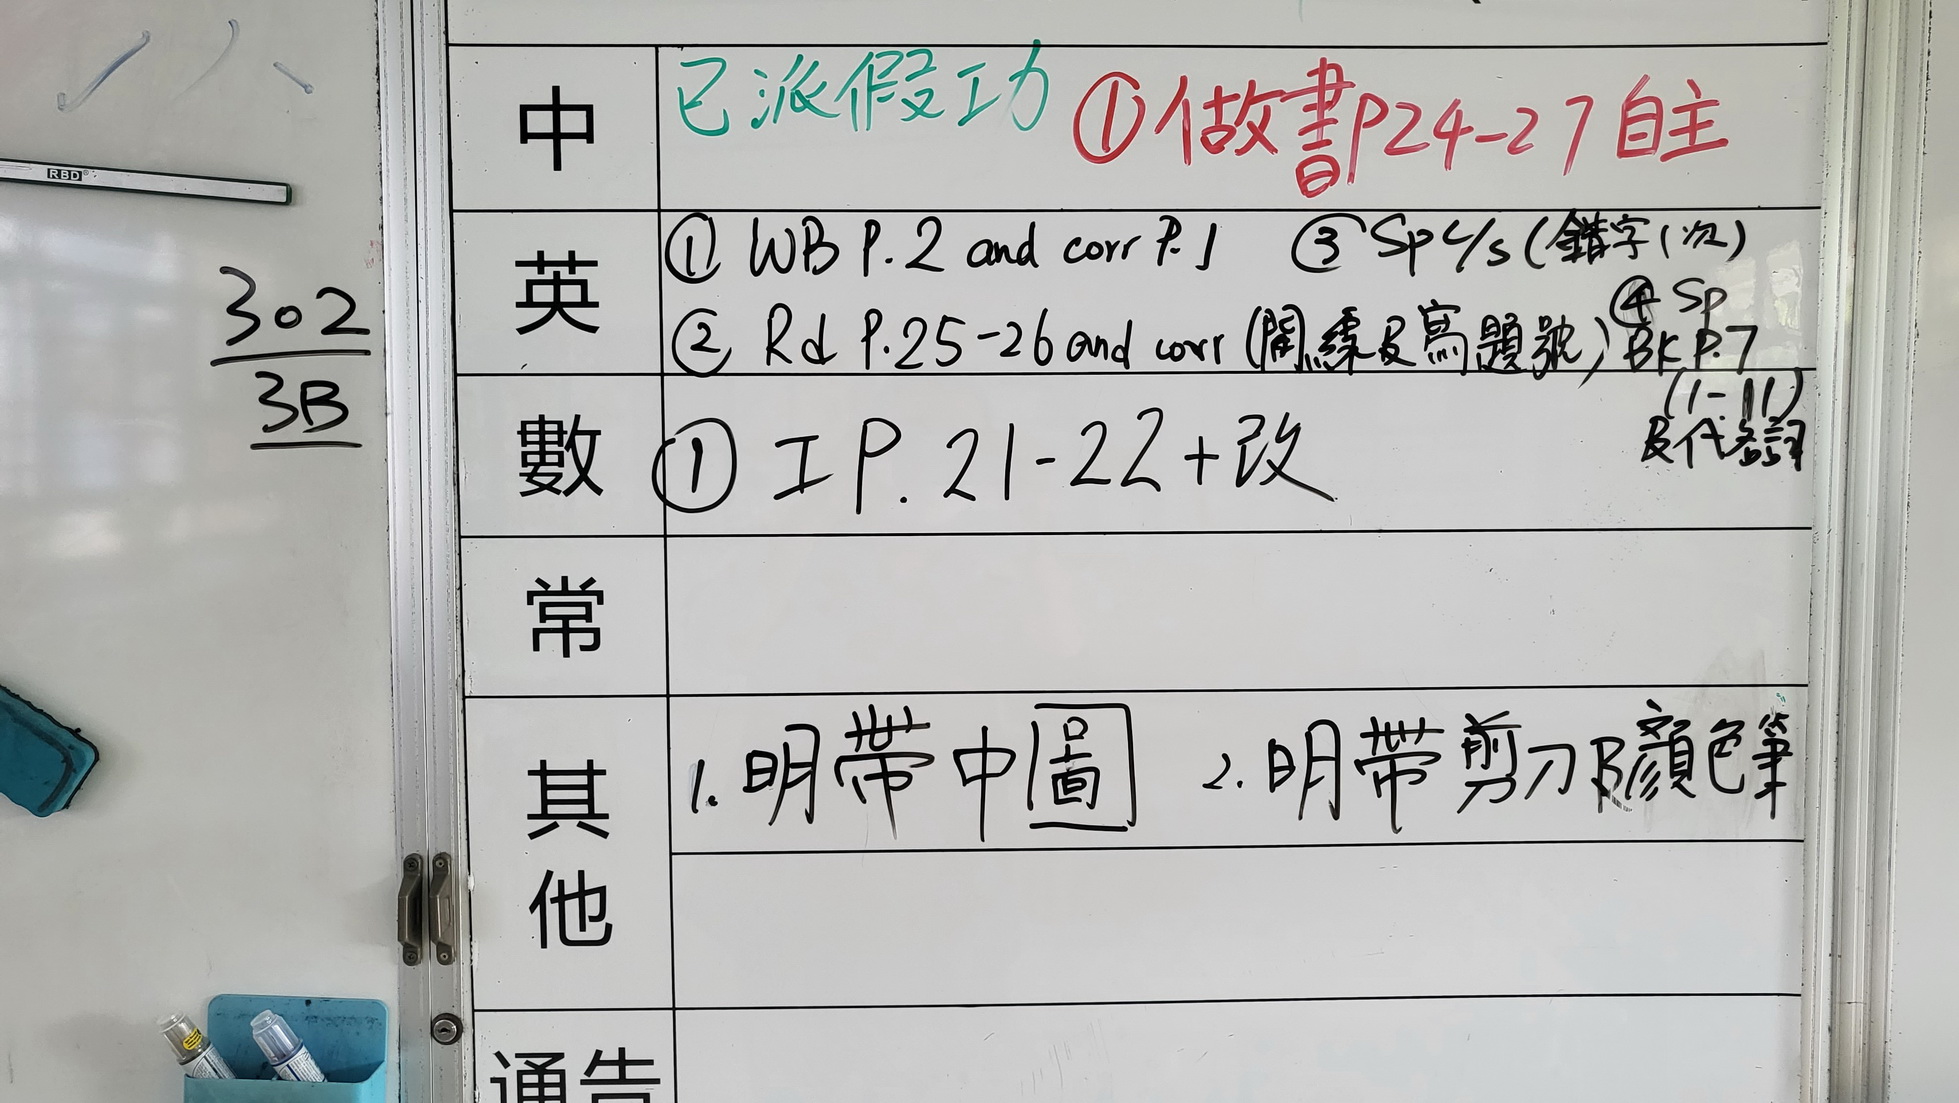 RBD
302
3B
中
已派假功 ①做書P24-27自主
英
① WB P.2 and corr P.1 ③ Sp c/s (錯字1次)
② Rd P.25-26 and corr (間線及寫題號)
④ Sp
BK P.7
(1-11)
及代名詞
數
① 工 P.21-22+改
常
其他
1. 明帶中圖 2. 明帶剪刀及顏色筆
通告